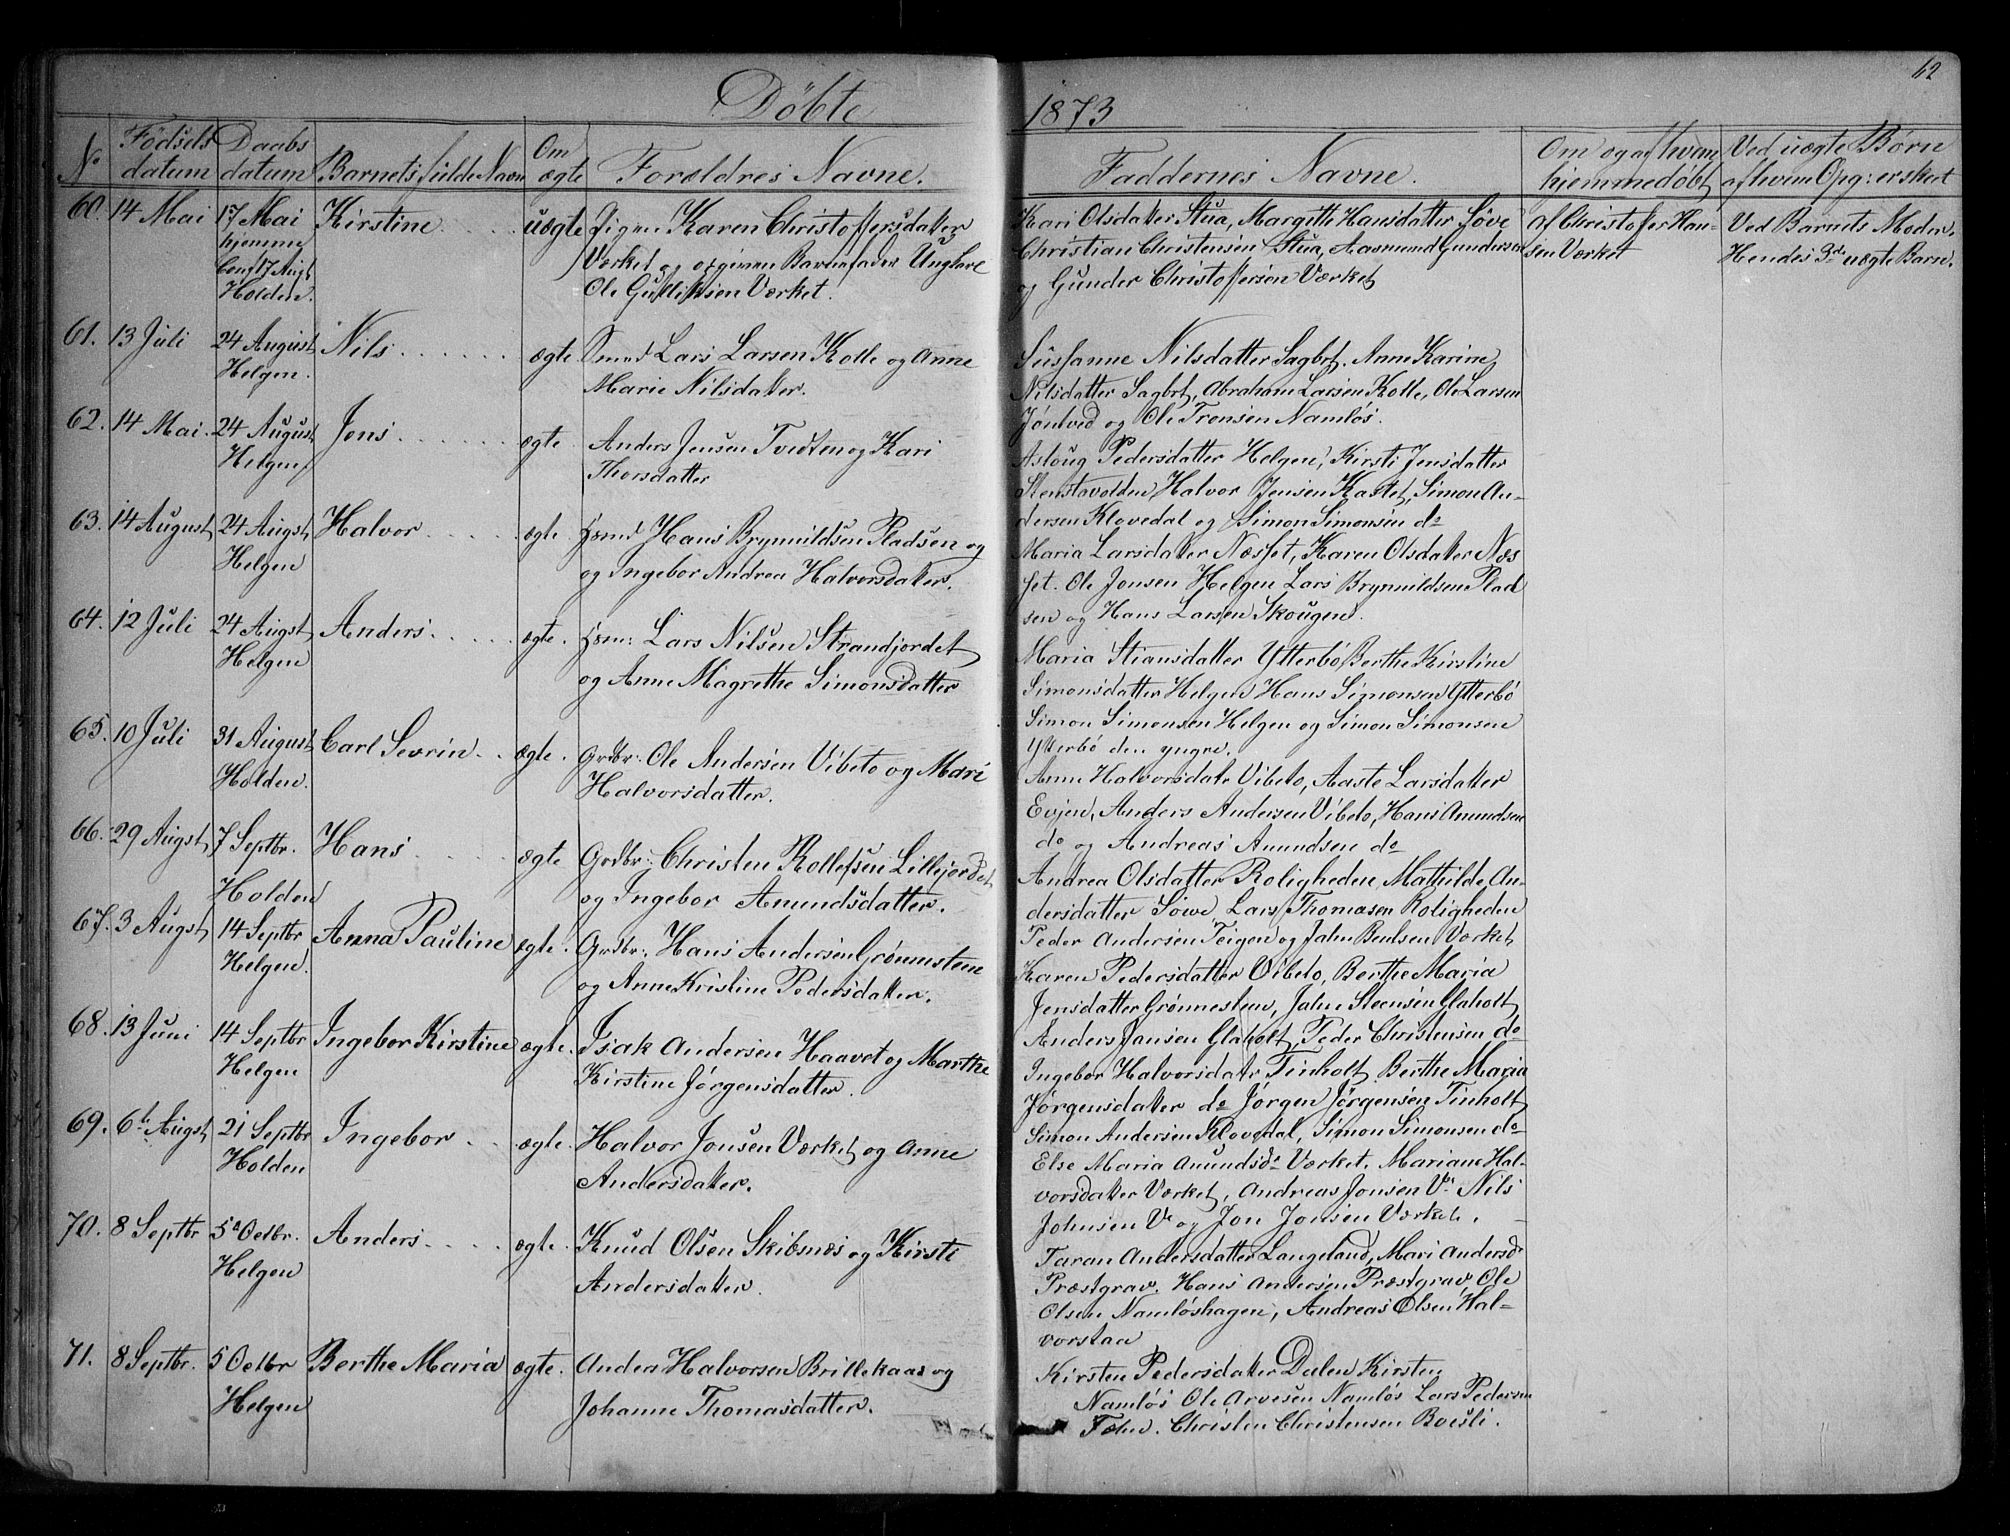 62
Døbte
1873
No
Fødsels datum
Daabs datum
Barnets fulde Navn
Om ægte
Forældres Navne.
Faddernes Navne.
Om og af hvem hjemmedøbt
Ved uægte Børn af hvem Opg: er skeet
60. 14 Mai 17 Mai Kirstine uægte Pigen Karen Christoffersdatter
hjemme Værket og opgiven Barnefader Ungkarl
Conf 17 Augst Ole Gulliksen Værket.
Holden.
Kari Olsdatter Stua, Margith Hansdatter Søve
Christian Christensen Stua, Aasmund Gundersen
og Gunder Christoffersen Værket
af Christoffer Han-
sen Værket
Ved Barnets Moder.
Hendes 3die uægte Barn.
61. 13 Juli 24 August Nils ægte Smed Lars Larsen Kolle og Anne
Helgen. Marie Nilsdatter.
Susanne Nilsdatter Sagbrt. Anne Karine
Nilsdatter Sagbrt, Abraham Larsen Kolle, Ole Larsen
Jøntved og Ole Tronsen Namløs.
62. 14 Mai. 24 August Jens ægte. Anders Jensen Tvedten og Kari
Helgen Thorsdatter
Asloug Pedersdatter Helgen, Kirsti Jensdatter
Stenstavolden, Halvor Jensen Kastet, Simon An-
dersen Klovedal og Simon Simonsen do
63. 14 August 24 Augst Halvor ægte. Hans Brynnildsen Pladsen og
Helgen og Ingebor Andrea Halvorsdatter.
Maria Larsdatter Næsset, Karen Olsdatter Næs
set. Ole Jonsen Helgen Lars Brynnildsen Plad
sen og Hans Larsen Skougen.
64. 12 Juli 24 Augst Anders ægte. Lars Nilsen Strandjordet
Helgen og Anne Magrethe Simonsdatter
Maria Stiansdatter Ytterbø Berthe Kirstine
Simonsdatter Helgen Hans Simonsen Ytterbø
Simon Simonsen Helgen og Simon Simonsen
Ytterbø den yngre.
65. 10 Juli 31 August Carl Sevrin ægte. Grdbr: Ole Andersen Vibeto og Mari
Holden. Halvorsdatter.
Anne Halvorsdatr Vibeto, Aaste Larsdatter
Evjen, Anders Andersen Vibeto, Hans Amundsen
do og Andreas Amundsen do
66. 29 Augst 7 Septbr. Hans ægte Grdbr: Christen Rollefsen Lillejordet
Holden og Ingebor Amundsdatter.
Andrea Olsdatter Roligheden, Mathilde An-
dersdatter Søve, Lars Thomasen Roligheden
Peder Andersen Teigen og Jahn Bentsen Værket
67. 3 Augst 14 Septbr Anna Pauline ægte. Grdbr: Hans Andersen Grønnsteen
Helgen. og Anne Kristine Pedersdatter.
Karen Pedersdatter Vibeto, Berthe Maria
Jensdatter Grønnesteen, Jahn Steensen Glaholt
Anders Jansen Glaholt, Peder Christensen do
68. 13 Juni 14 Septbr Ingebor Kirstine ægte. Isak Andersen Haavet og Marthe
Helgen Kirstine Jørgensdatter.
Ingebor Halvorsdatr Tinholt, Berthe Maria
Jørgensdatter do Jørgen Jørgensen Tinholt
Simon Andersen Klovedal, Simon Simonsen do
69. 6te Augst 21 Septbr Ingebor ægte. Halvor Jonsen Værket og Anne
Holden Andersdatter.
Else Maria Amundsdr Værket. Mariane Hal-
vorsdatter Værket, Andreas Jonsen V. Nils
Johnsen V. og Jon Jonsen Værket.
70. 8 Septbr 5te Octbr. Anders ægte. Knud Olsen Skibsnæs og Kirsti
Helgen Andersdatter.
Taran Andersdatter Langeland, Mari Andersdr
Præstgrav. Hans Andersen Præstgrav, Ole
Olsen Namløshagen, Andreas Olsen Hal-
vorstaa
71. 8 Septbr. 5 Octbr Berthe Maria ægte. Anders Halvorsen Brillekaas og
Helgen Johanne Thomasdatter.
Kirsten Pedersdatter Dalen Kirsten
Namløs Ole Arvesen Namløs Lars Pedersen
Christen Christensen